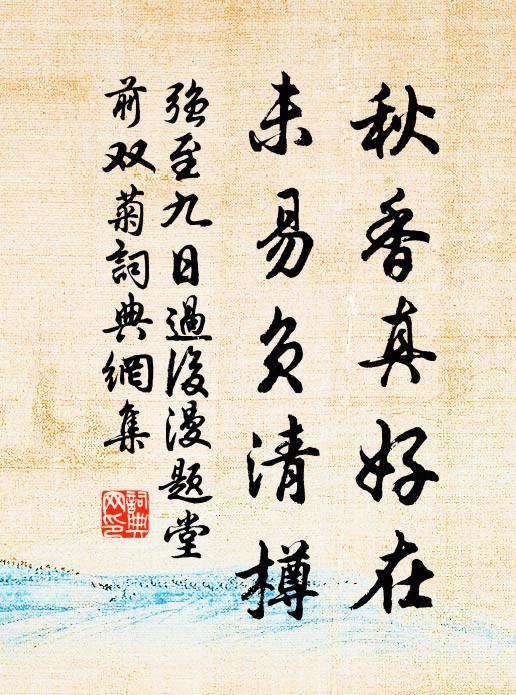 秋香真好在
未易负清樽
强至九日過後漫题堂
前双菊詞典網集
詞典
网印